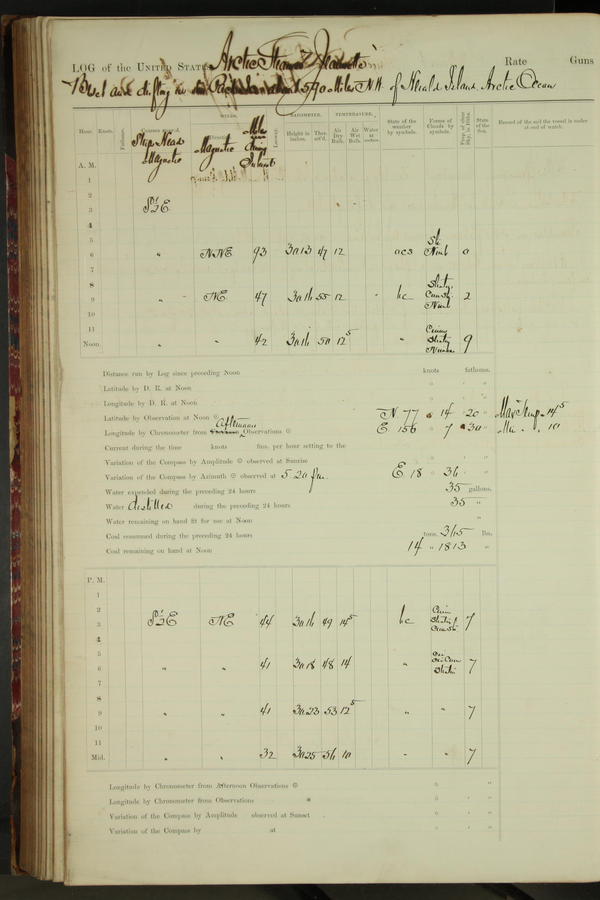 LOG of the United States Arctic Steamer "Jeannette" Rate Guns
Beset and drifting in the Pack about 540 Miles N.W. of Herald Island, Arctic Ocean
WINDS. BAROMETER. TEMPERATURE.
Hour. Knots. Fathoms. Courses steered. Leeway. Height in inches. Ther. att'd. Air Dry Bulb. Air Wet Bulb. Water at surface. State of the weather by symbols. Forms of Clouds by symbols. State of the Sea. Record of the sail the vessel is under at end of watch.
Ship's Head Magnetic Magnetic
A. M.
1
2
3 S½E
4
5
6 " NNE 93 30 13 47 12 ocs St. Nimb 0
7
8
9 " NE 47 30 16 55 12 bc 2
10
11
Noon. " " 42 30 16 50 12⁵ " 9
Distance run by Log since preceding Noon knots fathoms.
Latitude by D. R. at Noon
Longitude by D. R. at Noon
Latitude by Observation at Noon N 77 14 20 Max Temp. 14⁵
Longitude by Chronometer from Afternoon Observations E 156 7 30 Min " " 10
Current during the time knots fms. per hour setting to the
Variation of the Compass by Amplitude observed at Sunrise
Variation of the Compass by Azimuth observed at 5.20 pm. E 18 36
Water expended during the preceding 24 hours 35 gallons.
Water distilled during the preceding 24 hours 35 "
Water remaining on hand fit for use at Noon "
Coal consumed during the preceding 24 hours tons. 315 lbs.
Coal remaining on hand at Noon 14 " 1813 "
P. M.
1
2
3 S½E NE 44 30 16 49 14⁵ bc 7
4
5
6 " " 41 30 18 48 14 " 7
7
8
9 " " 41 30 23 53 12⁵ " " 7
10
11
Mid. " " 32 30 25 56 10 " " 7
Longitude by Chronometer from Afternoon Observations
Longitude by Chronometer from Observations
Variation of the Compass by Amplitude observed at Sunset
Variation of the Compass by at